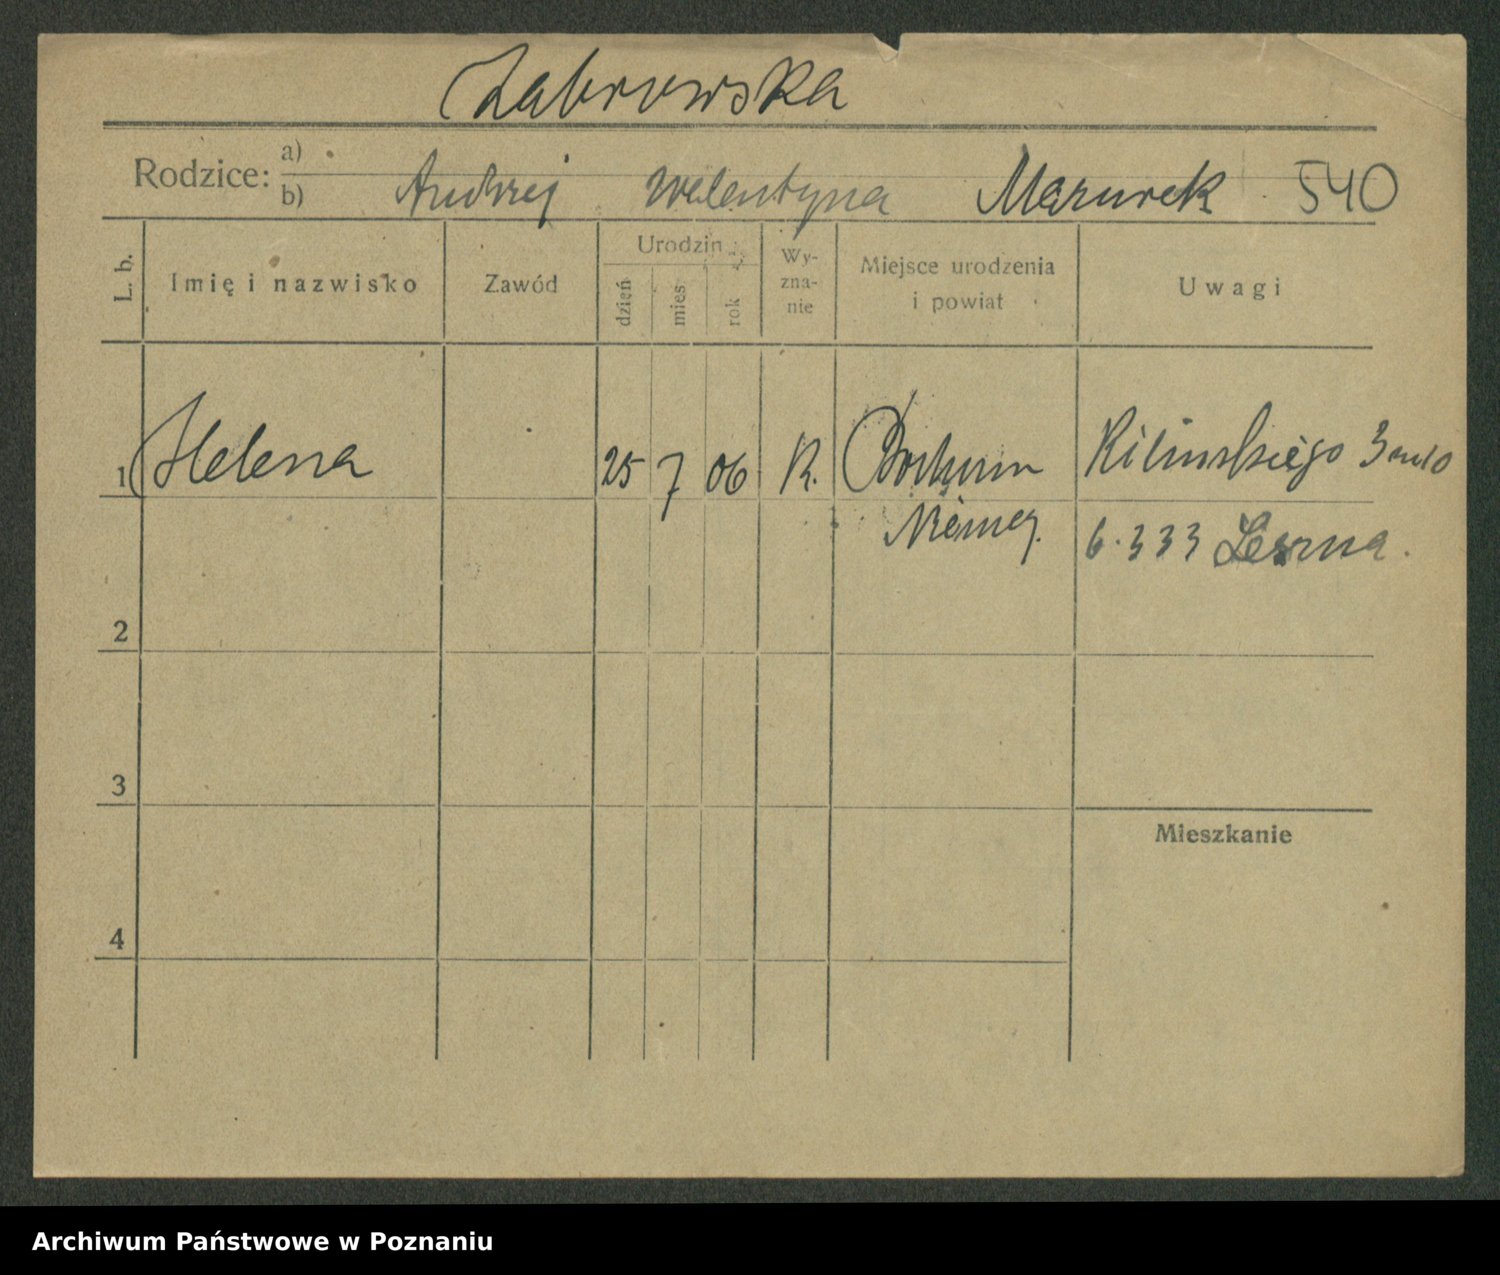 Zabrowska
Rodzice: a)
b) Andrzej Walentyna Mazurek 540
L. b. Imię i nazwisko Zawód Urodzin dzień mies. rok Wy-zna-nie Miejsce urodzenia i powiat Uwagi
1 Helena 25 7 06 R. Bochum Kilińskiego 3
Niemcy. 6.333 Leszna.
2
3
Mieszkanie
4
Archiwum Państwowe w Poznaniu